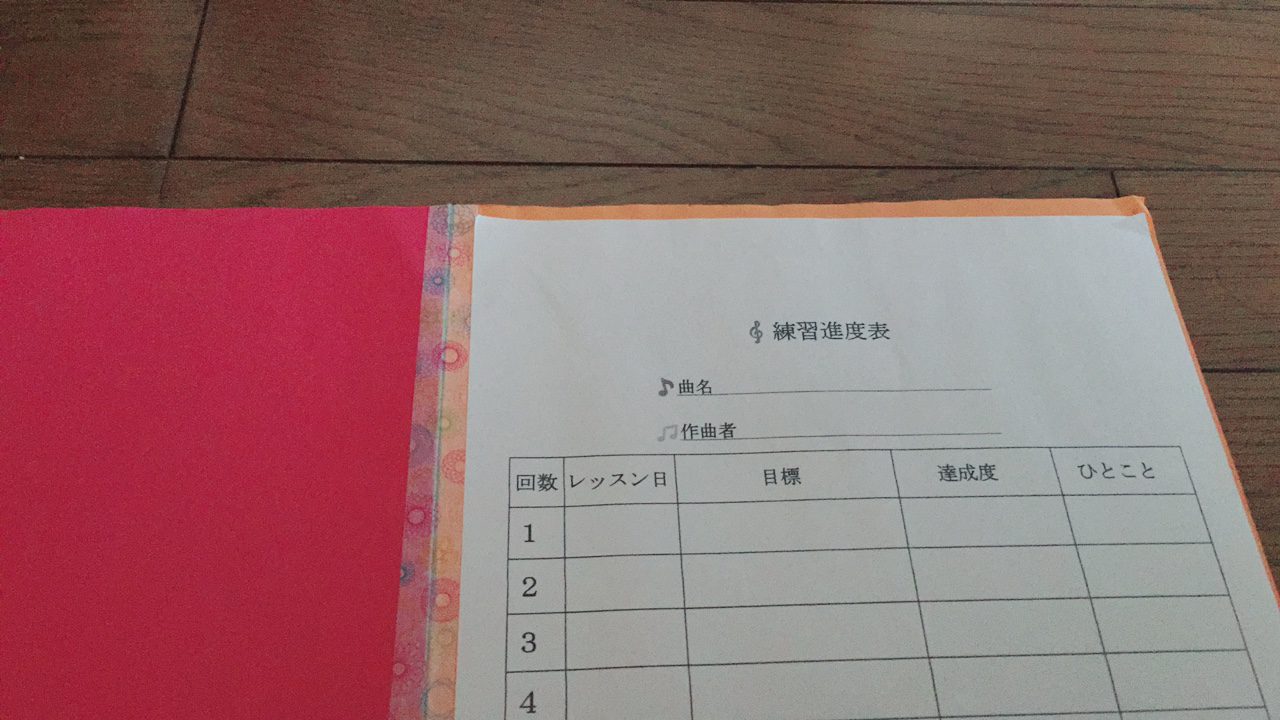 練習進度表
曲名
作曲者
回数 レッスン日 目標 達成度 ひとこと
1
2
3
4